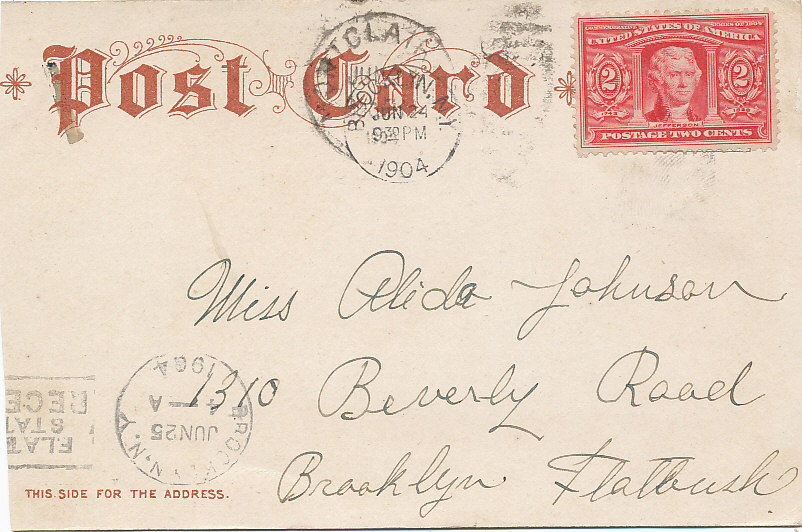 Post Card
COMMEMORATIVE SERIES OF 1904
UNITED STATES OF AMERICA
2 2
JEFFERSON
POSTAGE TWO CENTS
BROOKLYN, N.Y.
JUN 24
9 30 PM
1904
Miss Alida Johnson
1310 Beverly Road
Brooklyn Flatbush
BROOKLYN, N.Y.
JUN 25
4 - A
1904
FLAT
STAT
RECE
THIS SIDE FOR THE ADDRESS.